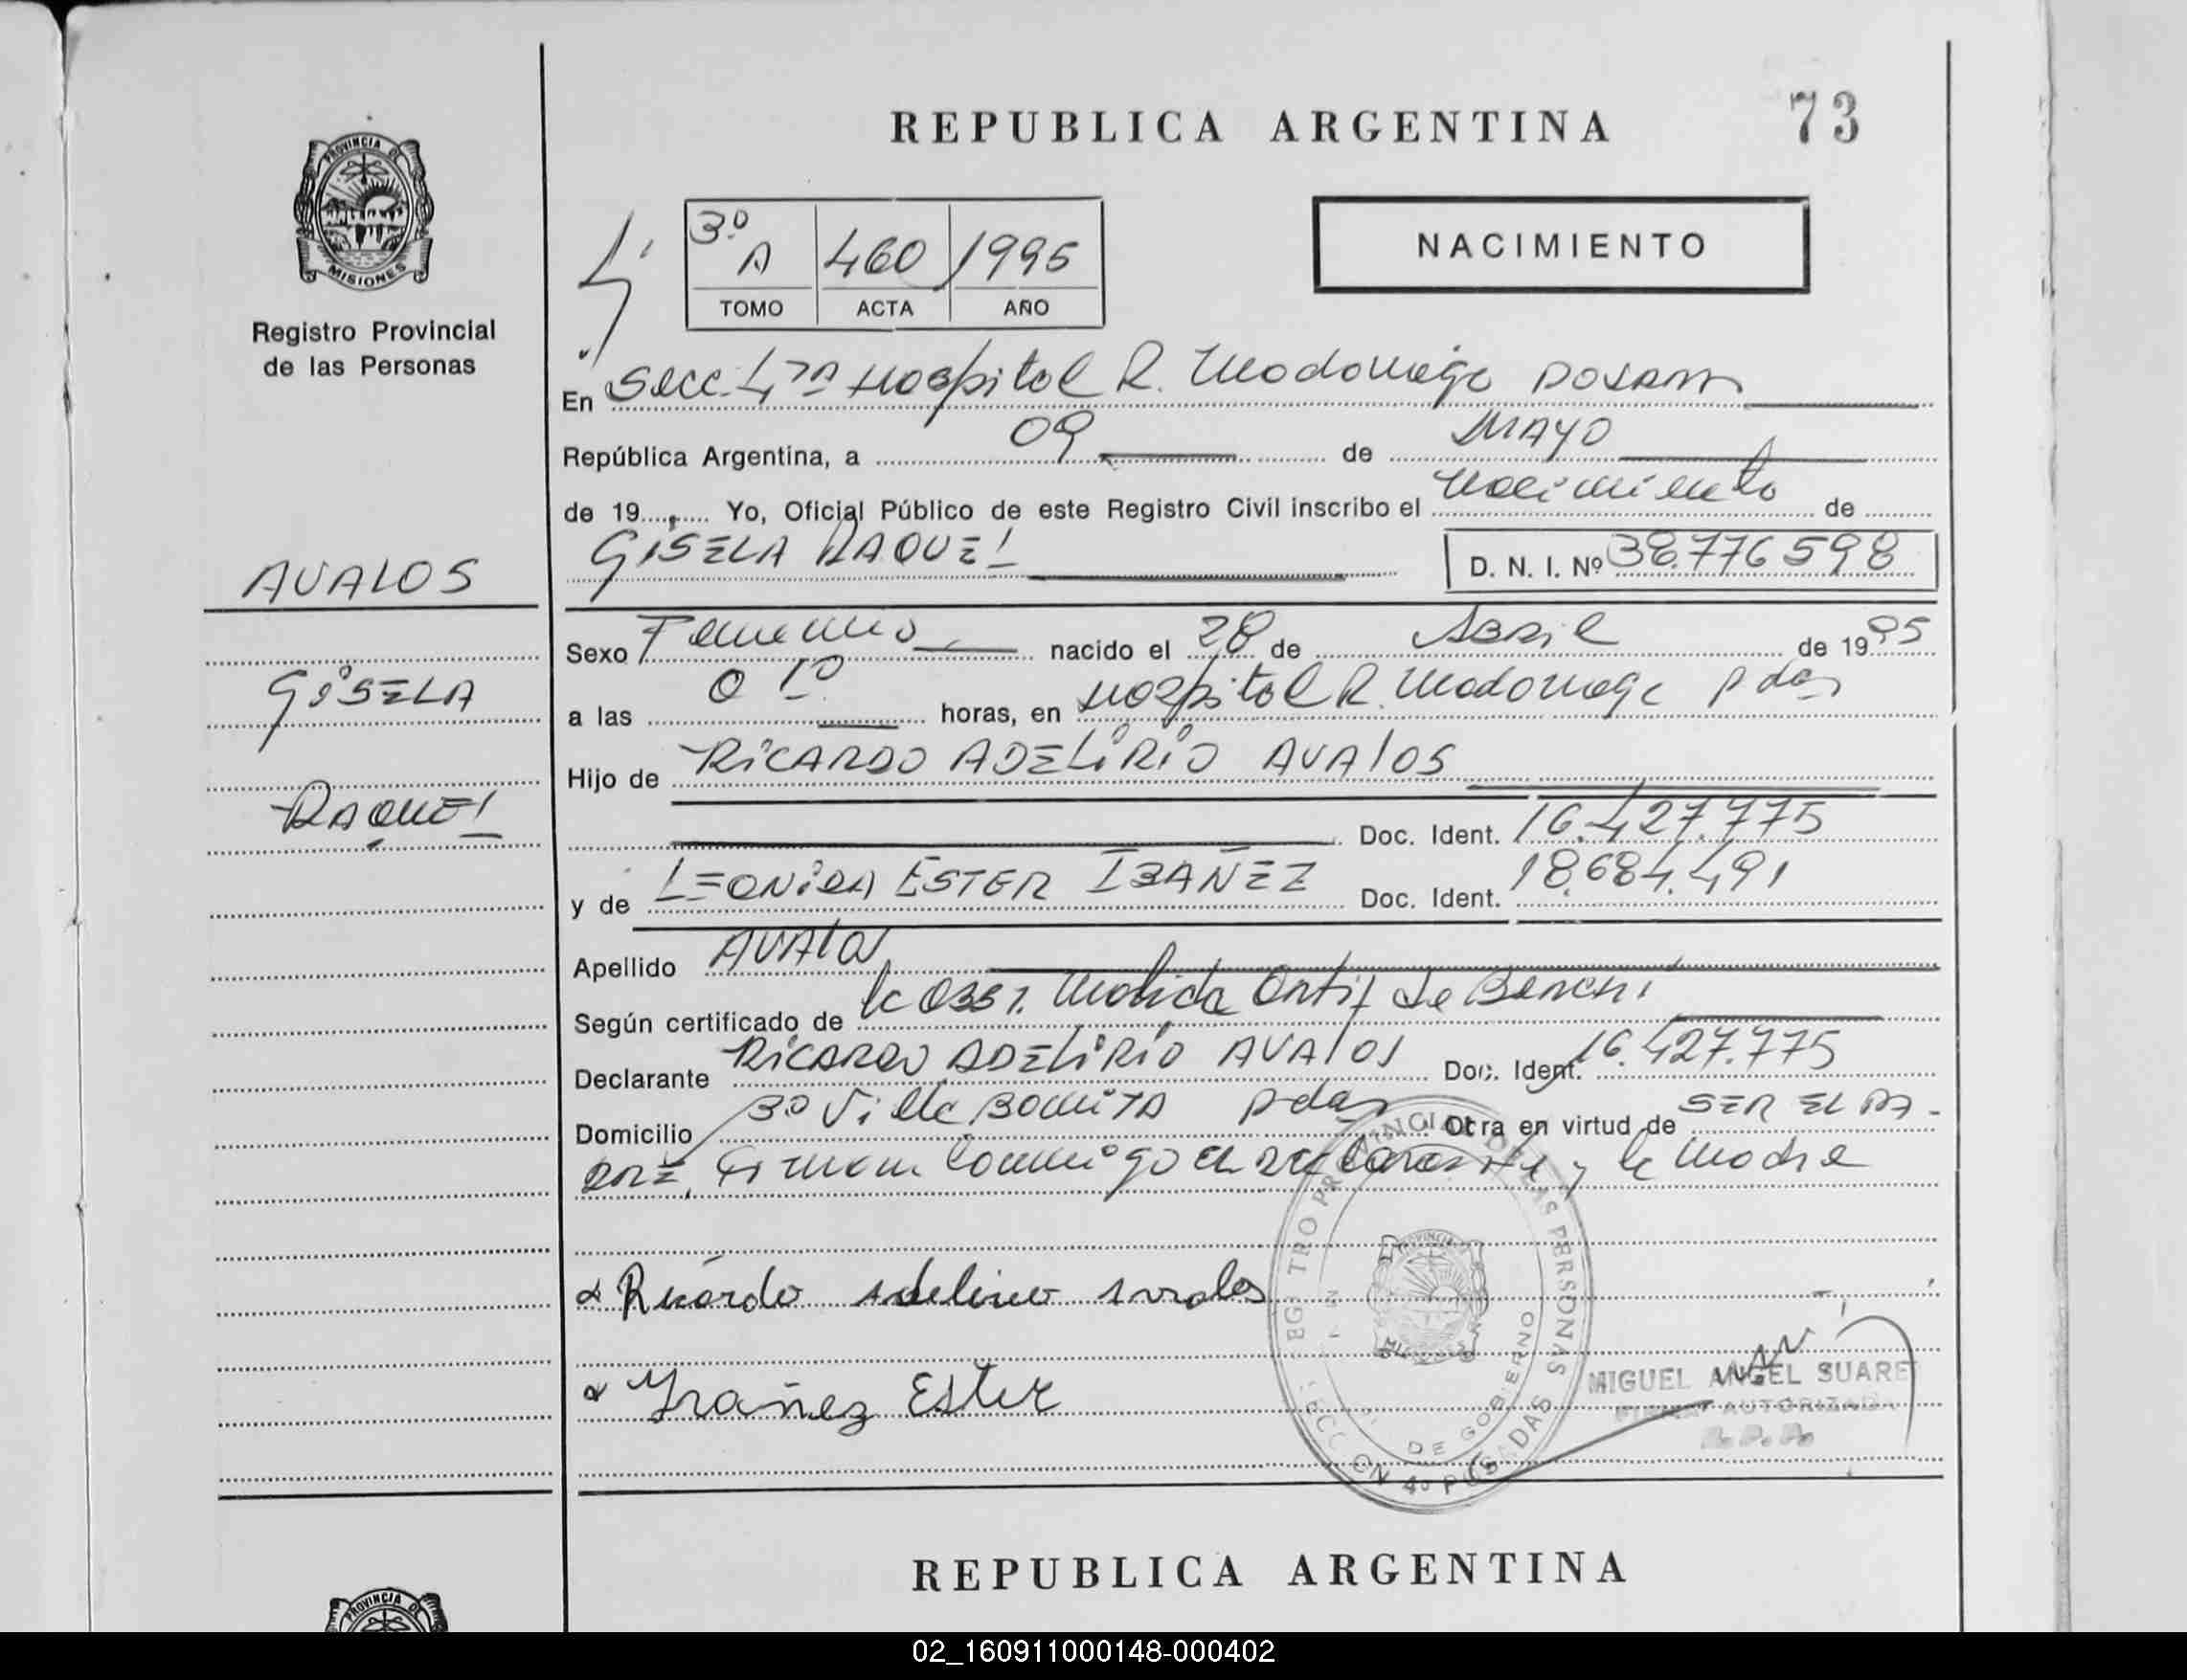 REPUBLICA ARGENTINA
73
PROVINCIA DE
MISIONES
Registro Provincial
de las Personas
3º A 460 1995
TOMO ACTA AÑO
NACIMIENTO
En Secc. 4ta Hospital R. Madariaga Posadas
República Argentina, a 09 de MAYO
de 19 Yo, Oficial Público de este Registro Civil inscribo el Nacimiento de
GISELA RAQUEL D. N. I. Nº 38.776598
AVALOS
GISELA
RAQUEL
Sexo Femenino nacido el 28 de Abril de 1995
a las 01º horas, en Hospital R. Madariaga Pdas
Hijo de RICARDO ADELIRIO AVALOS
Doc. Ident. 16.427.775
y de LEONIDA ESTER IBAÑEZ Doc. Ident. 18.684.491
Apellido AVALOS
Según certificado de la Obst. Ortiz de
Declarante RICARDO ADELIRIO AVALOS Doc. Ident. 16.427.775
Domicilio Bº Villa BONITA Pdas Otra en virtud de SER EL PA-
DRE, Firman Conmigo el declarante y la Madre
Ricardo Avalos
Ibañez Ester
REGISTRO PROVINCIAL DE LAS PERSONAS
DE GOBIERNO
SECCION 4º POSADAS
MIGUEL ANGEL SUARE
FIRMA AUTORIZADA
REPUBLICA ARGENTINA
PROVINCIA DE
02_160911000148-000402